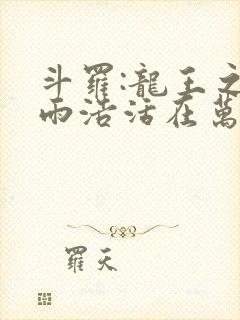 斗羅:龍王之
雨浩活在萬
羅天